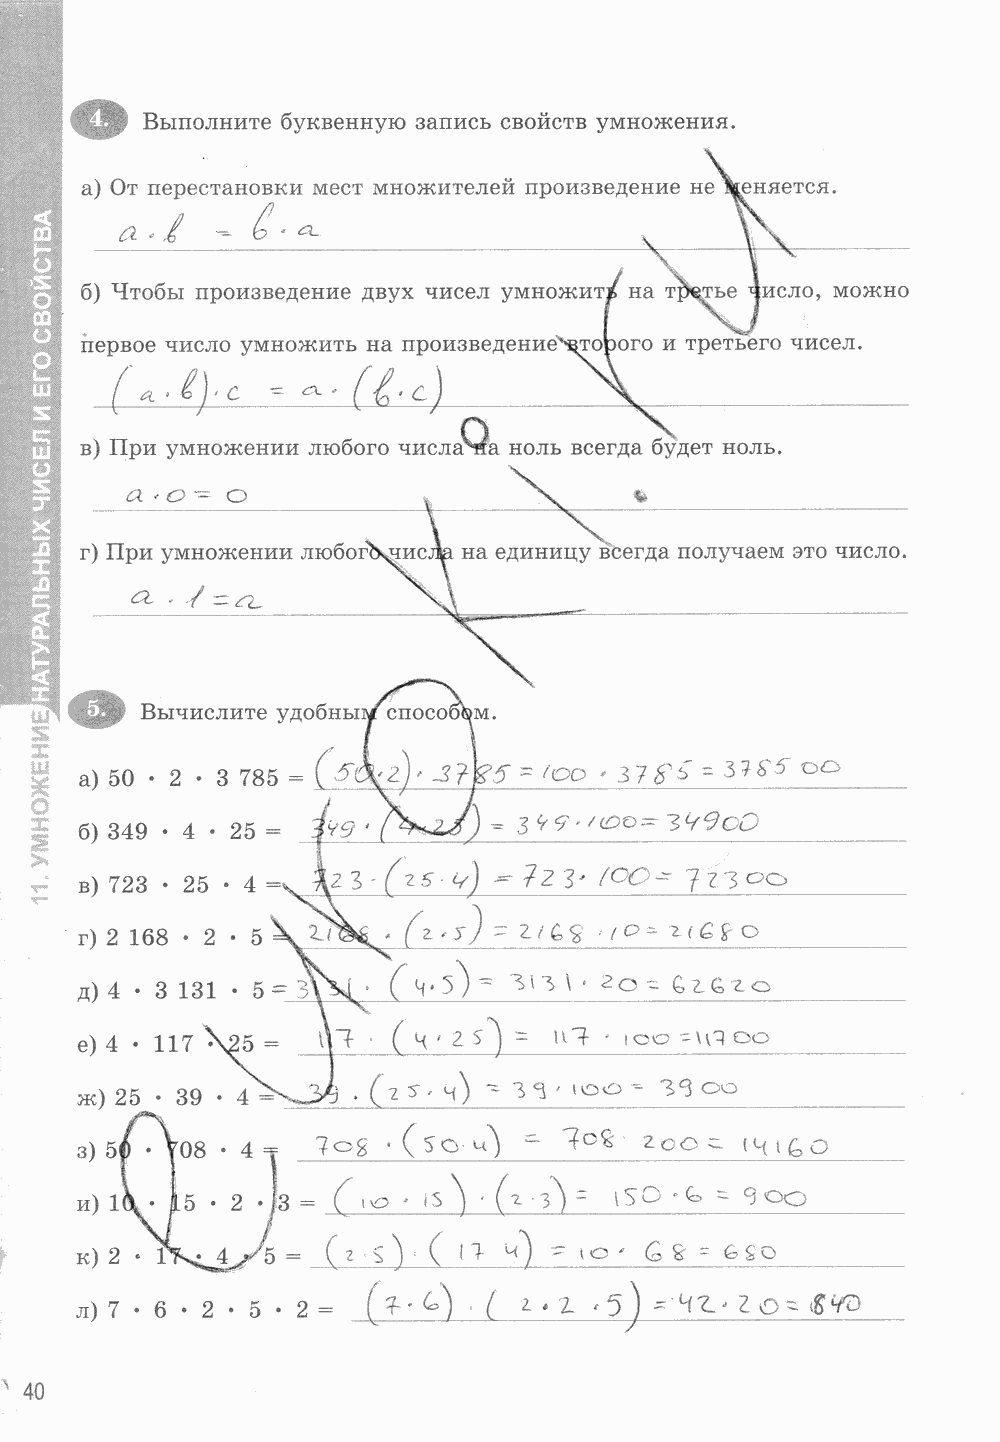 11. УМНОЖЕНИЕ НАТУРАЛЬНЫХ ЧИСЕЛ И ЕГО СВОЙСТВА
4. Выполните буквенную запись свойств умножения.
а) От перестановки мест множителей произведение не меняется.
a · b = b · a
б) Чтобы произведение двух чисел умножить на третье число, можно
первое число умножить на произведение второго и третьего чисел.
(a · b) · c = a · (b · c)
в) При умножении любого числа на ноль всегда будет ноль.
a · 0 = 0
г) При умножении любого числа на единицу всегда получаем это число.
a · 1 = a
5. Вычислите удобным способом.
а) 50 · 2 · 3 785 = (50 · 2) · 3785 = 100 · 3785 = 378500
б) 349 · 4 · 25 = 349 · (4 · 25) = 349 · 100 = 34900
в) 723 · 25 · 4 = 723 · (25 · 4) = 723 · 100 = 72300
г) 2 168 · 2 · 5 = 2168 · (2 · 5) = 2168 · 10 = 21680
д) 4 · 3 131 · 5 = 3131 · (4 · 5) = 3131 · 20 = 62620
е) 4 · 117 · 25 = 117 · (4 · 25) = 117 · 100 = 11700
ж) 25 · 39 · 4 = 39 · (25 · 4) = 39 · 100 = 3900
з) 50 · 708 · 4 = 708 · (50 · 4) = 708 · 200 = 14160
и) 10 · 15 · 2 · 3 = (10 · 15) · (2 · 3) = 150 · 6 = 900
к) 2 · 17 · 4 · 5 = (2 · 5) · (17 4) = 10 · 68 = 680
л) 7 · 6 · 2 · 5 · 2 = (7 · 6) · (2 · 2 · 5) = 42 · 20 = 840
40